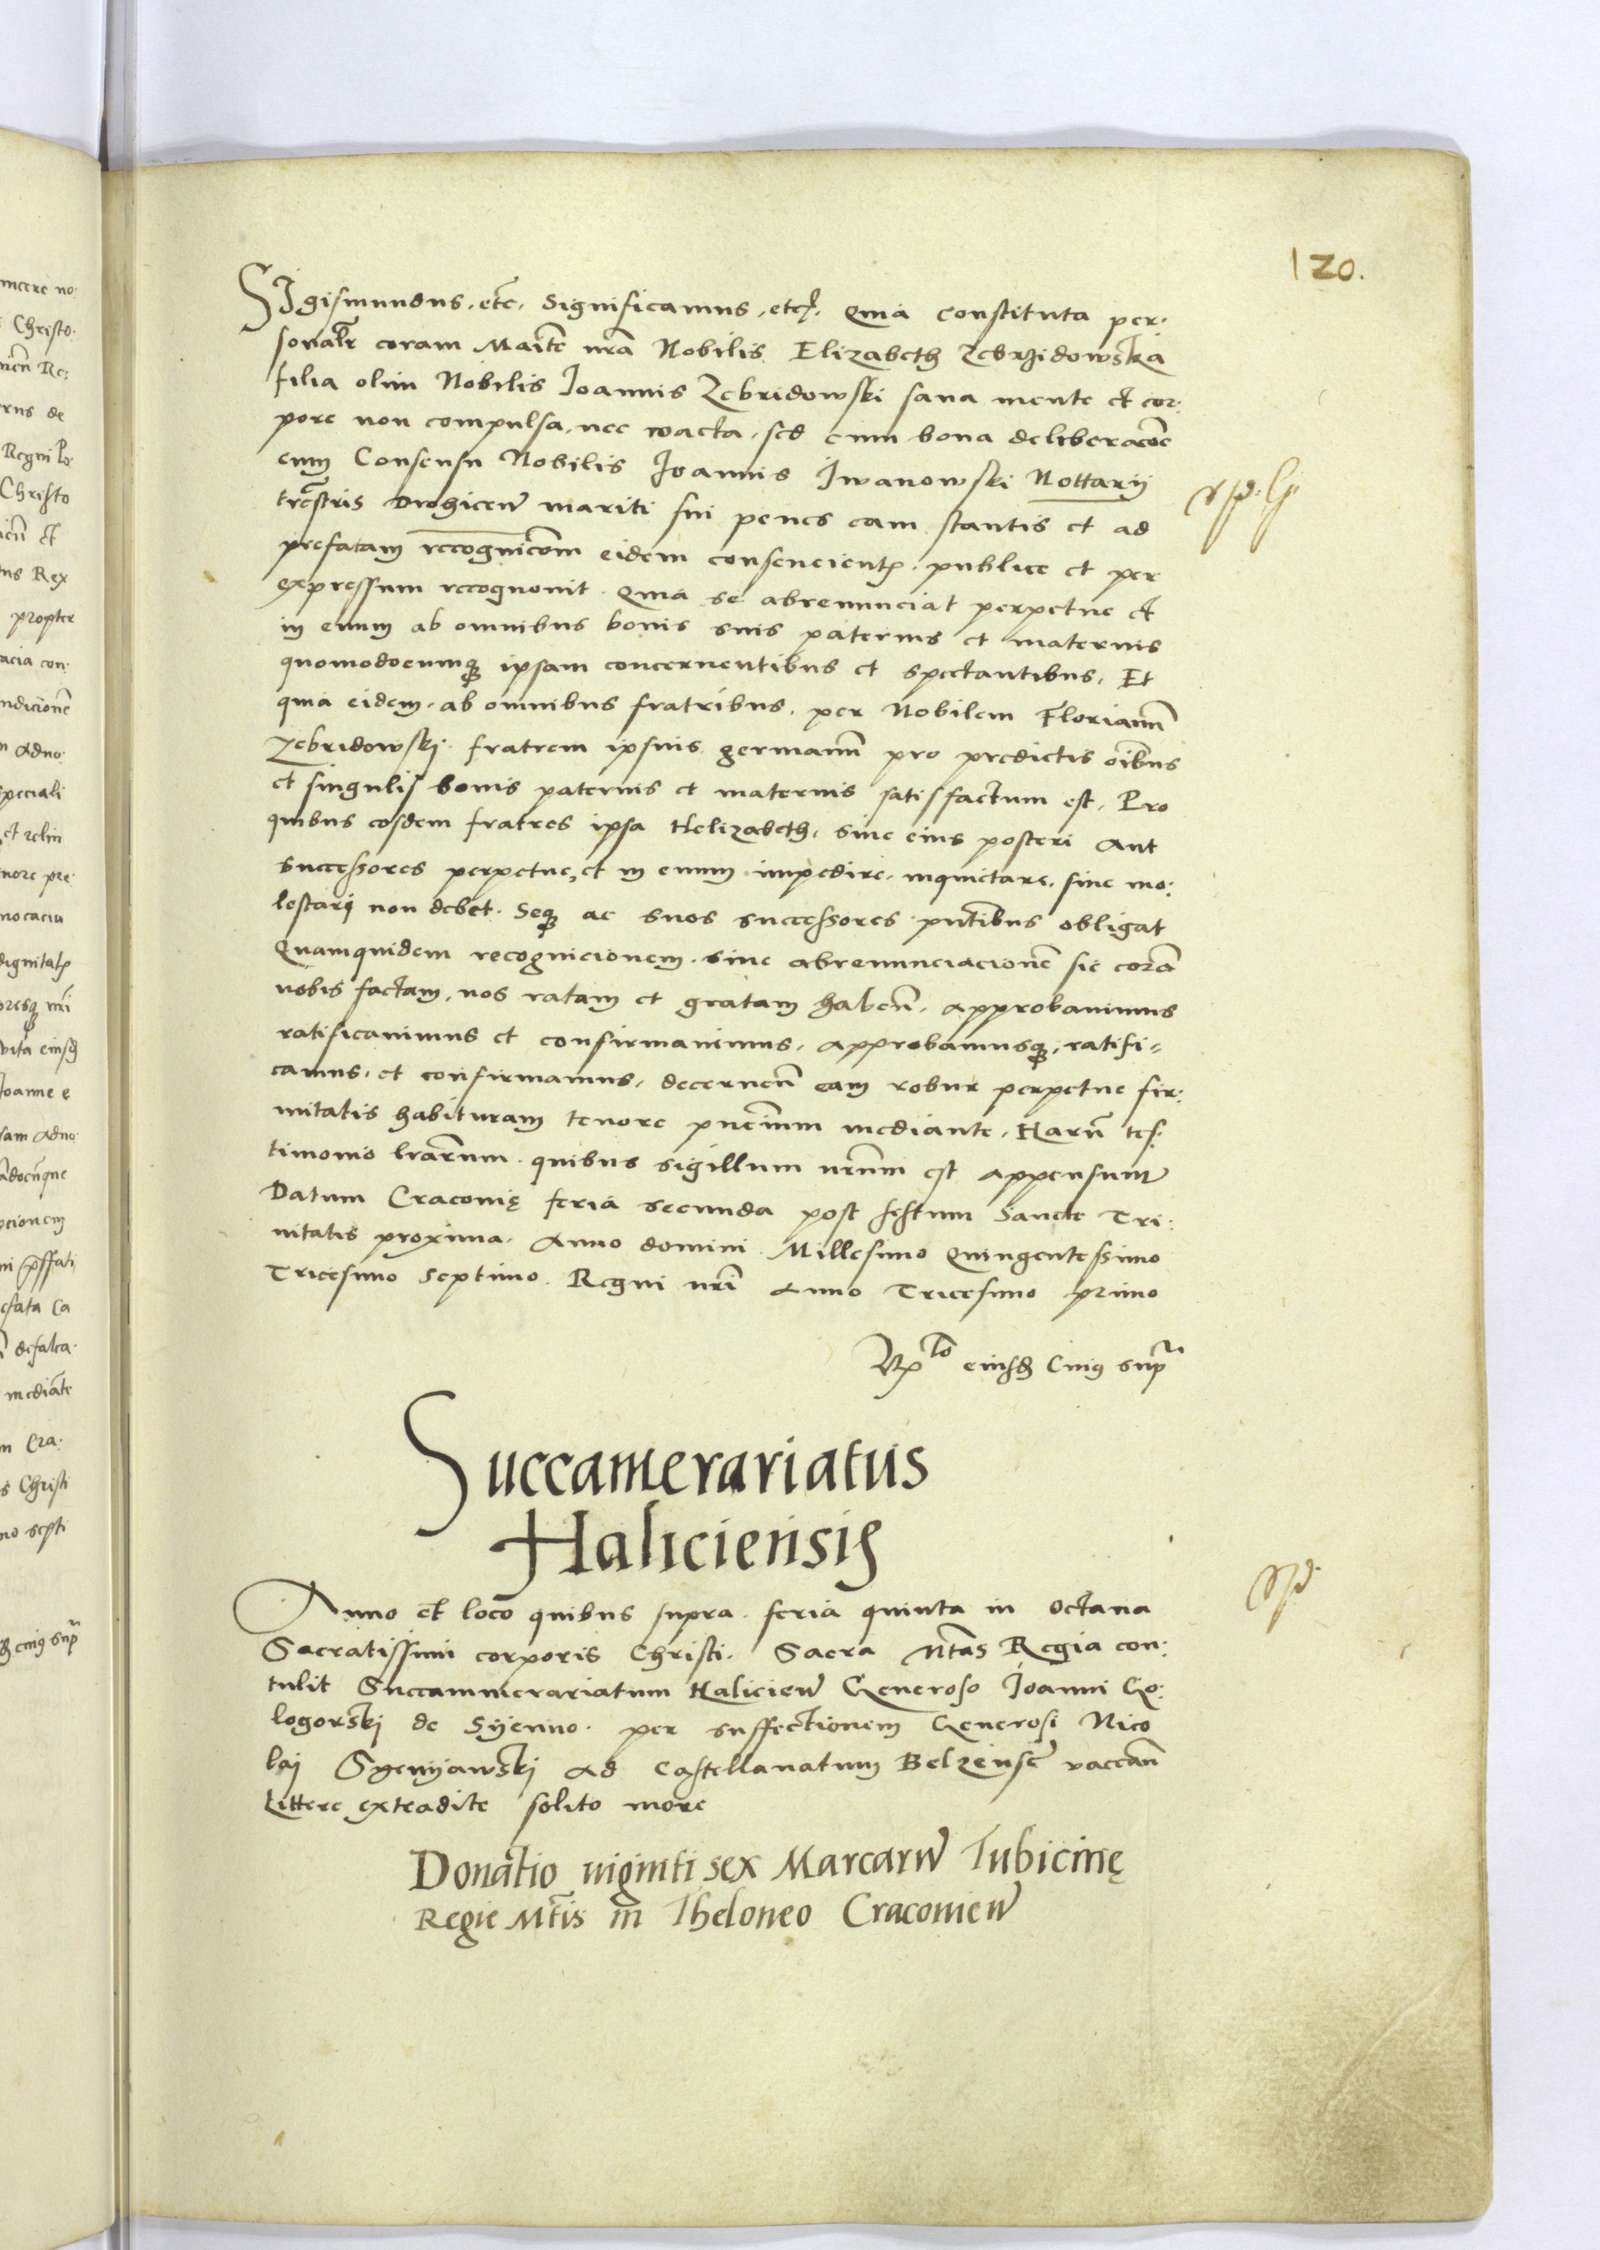 120.
Sigismundus, etc, Significamus, etc. Quia constituta per:
sonalr coram Maitte nra Nobilis Elizabeth Zebrzidowska
filia olim Nobilis Joannis Zebridowski sana mente et cor:
pore non compulsa, nec coacta, sed cum bona deliberacõe
cum Consensu Nobilis Joannis Iwanowski Nottarij
trestris Drohicen mariti sui penes eam stantis et ad
prefatam recognicõem eidem consencient, publice et per
expressum recognovit. Quia se abrenunciat perpetue et
in evum ab omnibus bonis suis paternis et maternis
quomodocumq ipsam concernentibus et spectantibus, Et
quia eidem, ab omnibus fratribus, per Nobilem Florianũ
Zebridowskj fratrem ipsius germanũ pro predictis oibus
et singulis bonis paternis et maternis satisfactum est, Pro
quibus eosdem fratres ipsa Helizabeth, sive eius posteri Aut
successores perpetue, et in evum impedire, inquietare, sive mo:
lestari non debet. Seq ac suos successores pntibus obligat
Quamquidem recognicionem, sive abrenunciacionẽ sic corã
nobis factam, nos ratam et gratam haben̄, approbavimus
ratificavimus et confirmavimus, Approbamusq, ratifi=
camus, et confirmamus, decernen̄ eam robur perpetue fir:
mitatis habituram tenore pñcium mediante, Harũ tes:
timonio lrarum, quibus sigillum nrum est appensum
Datum Craconię feria secunda post festum Sancte Tri:
nitatis proxima, Anno domini Millesimo Quingentessimo
Tricesimo Septimo. Regni nri Anno Tricesimo primo
eiusd Cuius supra
Succamerariatus
Haliciensis
Anno et loco quibus supra feria quinta in octava
Sacratissimi corporis Christi. Sacra Mtas Regia con:
tulit Succammerariatum Halicien Generoso Joanni Go:
logorskj de Syenno per suffectionem Generosi Nico
laj Syenyawskj ad Castellanatum Belzensẽ vaccan̄
Littere extradite solito more
Donatio viginti sex Marcarum Tubicinę
Regie Mtis in Theloneo Craconien